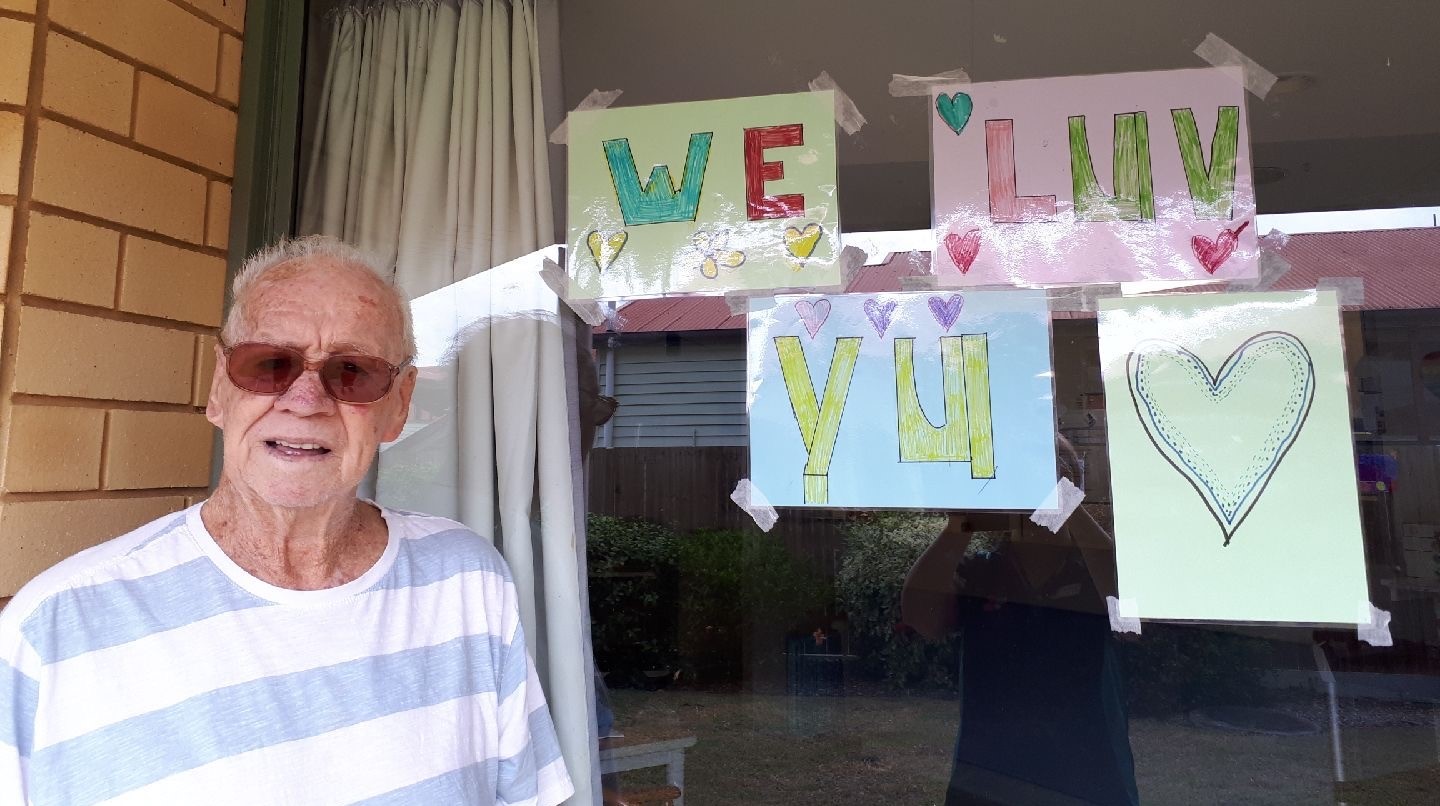 WE LUV
YU